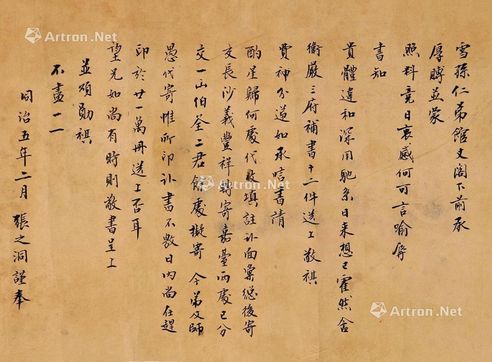 雪孫仁弟館丈閣下前承
厚賻並蒙
照料竟日哀感何可言喻辱
書知
貴體違和深用馳系日来想已霍然舍
衡嚴三府補書十二件送上敬祺
費神分道如承唁書請
酌量歸何處代收填註訃面彙總後寄
交長沙義豐祥 寄 臺兩處已分
交一山伯荃二君 處擬寄 今弟及師
愚代寄惟所印訃書不数日内尚在趕
印於廿一萬冊送上否耳
望光如尚有時則敬書呈上
並頌勛祺
不盡一一
同治五年二月 張之洞謹奉
Artron.Net
Artron.Net
Artron.Net
Artron.Net